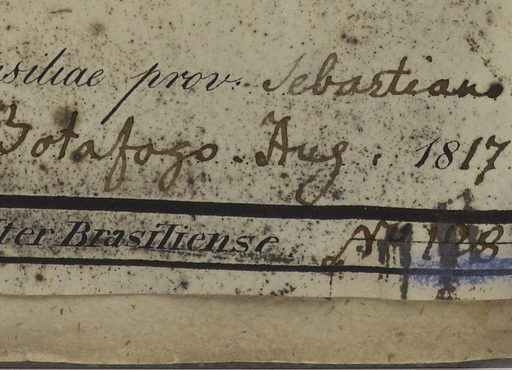 siliae prov. Sebastiano
Botafogo. Aug. 1817
iter Brasiliense. Nº 108